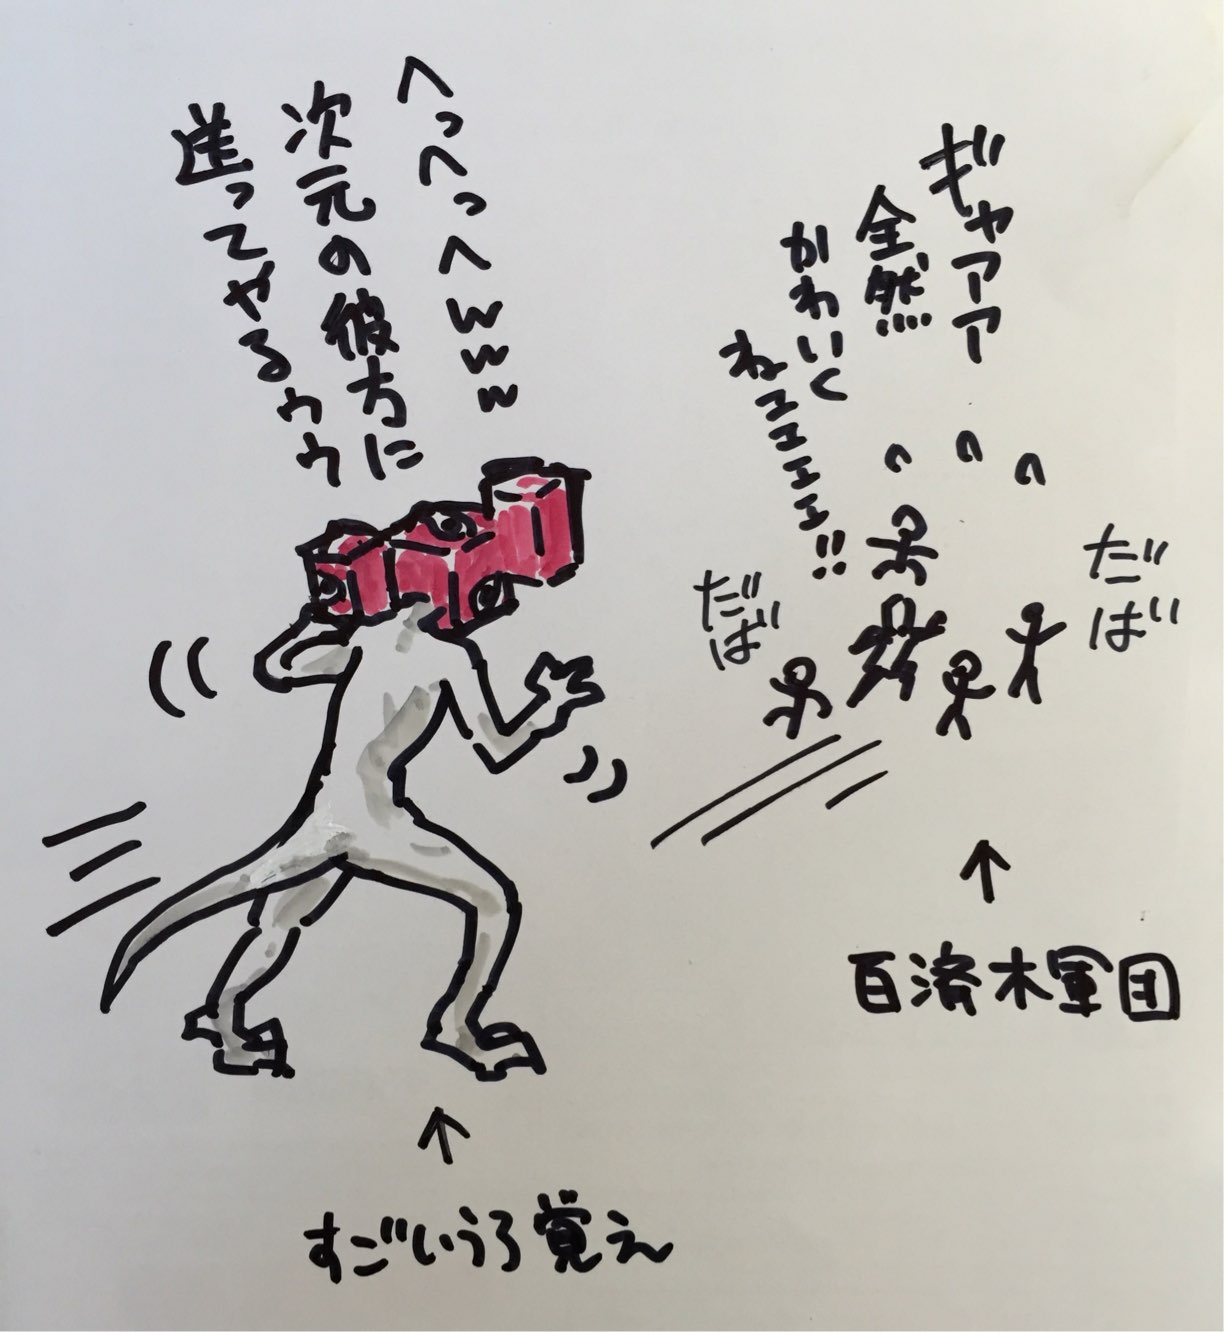 ギャアアア
全然
かわいく
ねエエエエエ!!
へっへっへwww
次元の彼方に
送ってやるゥゥ
だばァ
だばァ
百済木軍団
すごいうろ覚え